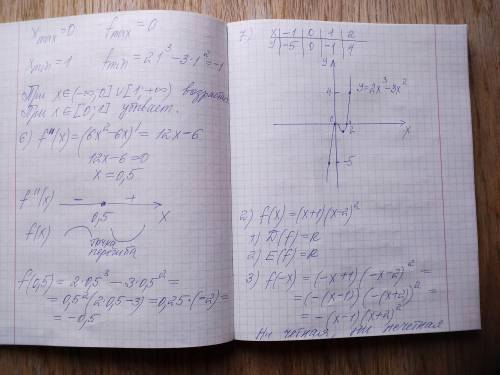 x max = 0 f max = 0
x min = 1 f min = 2·1³ - 3·1² = -1
При x∈(-∞;0]∪[1;+∞) возрастает
При x∈[0;1] убывает.
6) f''(x) = (6x² - 6x)' = 12x - 6
12x - 6 = 0
x = 0,5
f''(x) - +
0,5 X
f(x) точка
перегиба
f(0,5) = 2·0,5³ - 3·0,5² =
= 0,5²(2·0,5 - 3) = 0,25·(-2) =
= -0,5
7) x -1 0 1 2
y -5 0 -1 4
y
4 y = 2x³ - 3x²
0 2 x
-5
2) f(x) = (x+1)(x-2)²
1) D(f) = R
2) E(f) = R
3) f(-x) = (-x+1)(-x-2)² =
= (-(x-1))(-(x+2))² =
= -(x-1)(x+2)²
Ни четная, ни нечетная